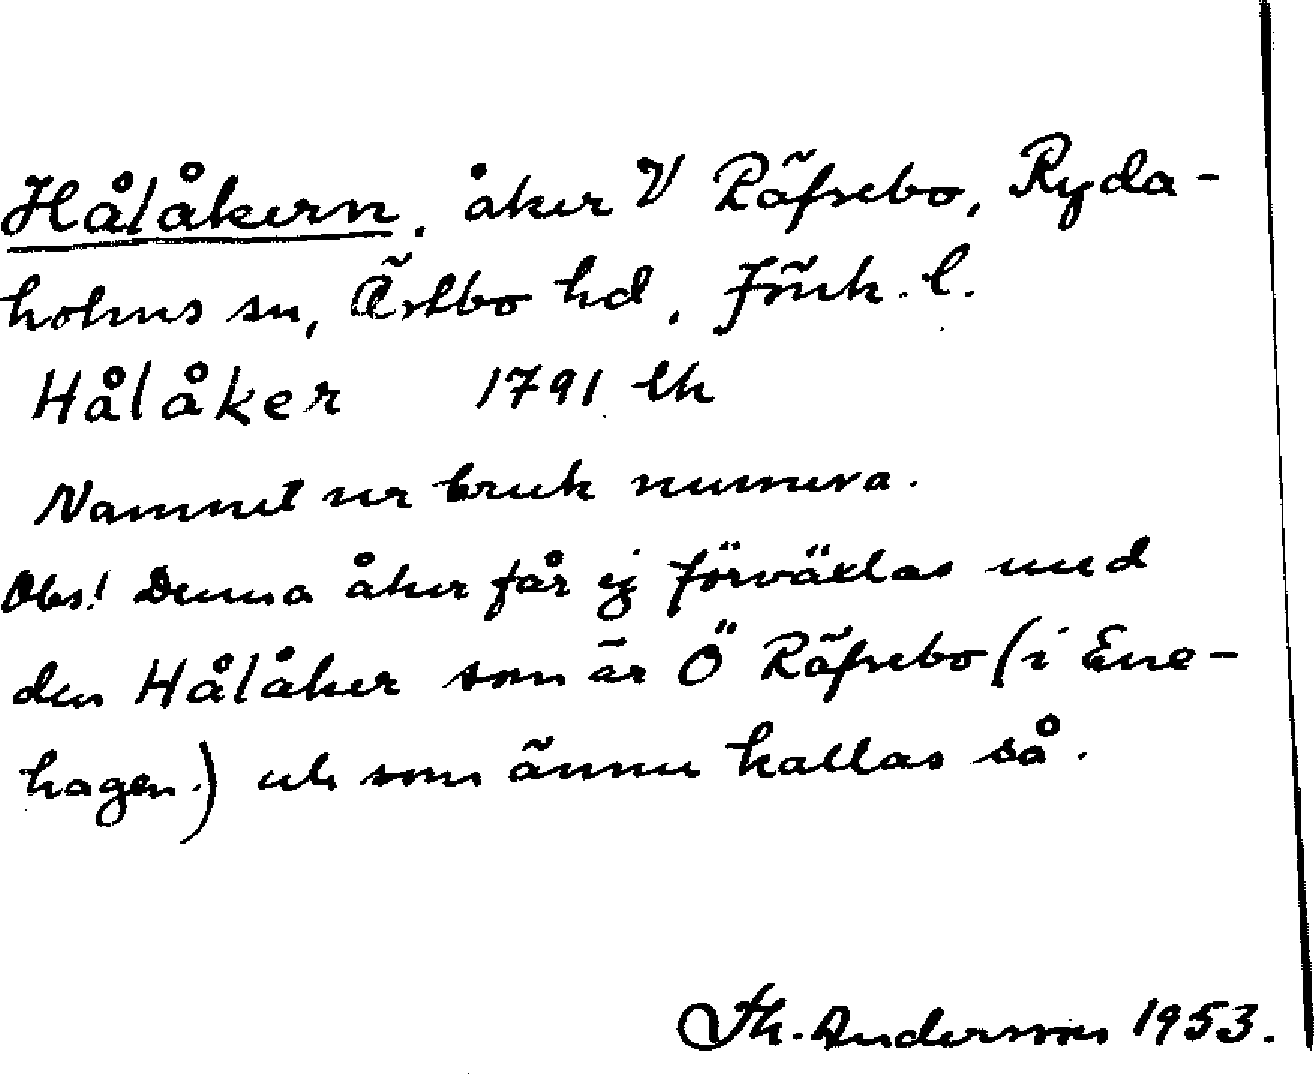 Hålåkern, åker V Räfsebo, Ryda-
holms sn, Östbo hd, Jönk. l.
Hålåker 1791 lh
Namnet ur bruk numera.
Obs! Denna åker får ej förväxlas med
den Hålåker som är Ö Räfsebo (i Ene-
hagen.) och som ännu kallas så.
Th. Andersson 1953.